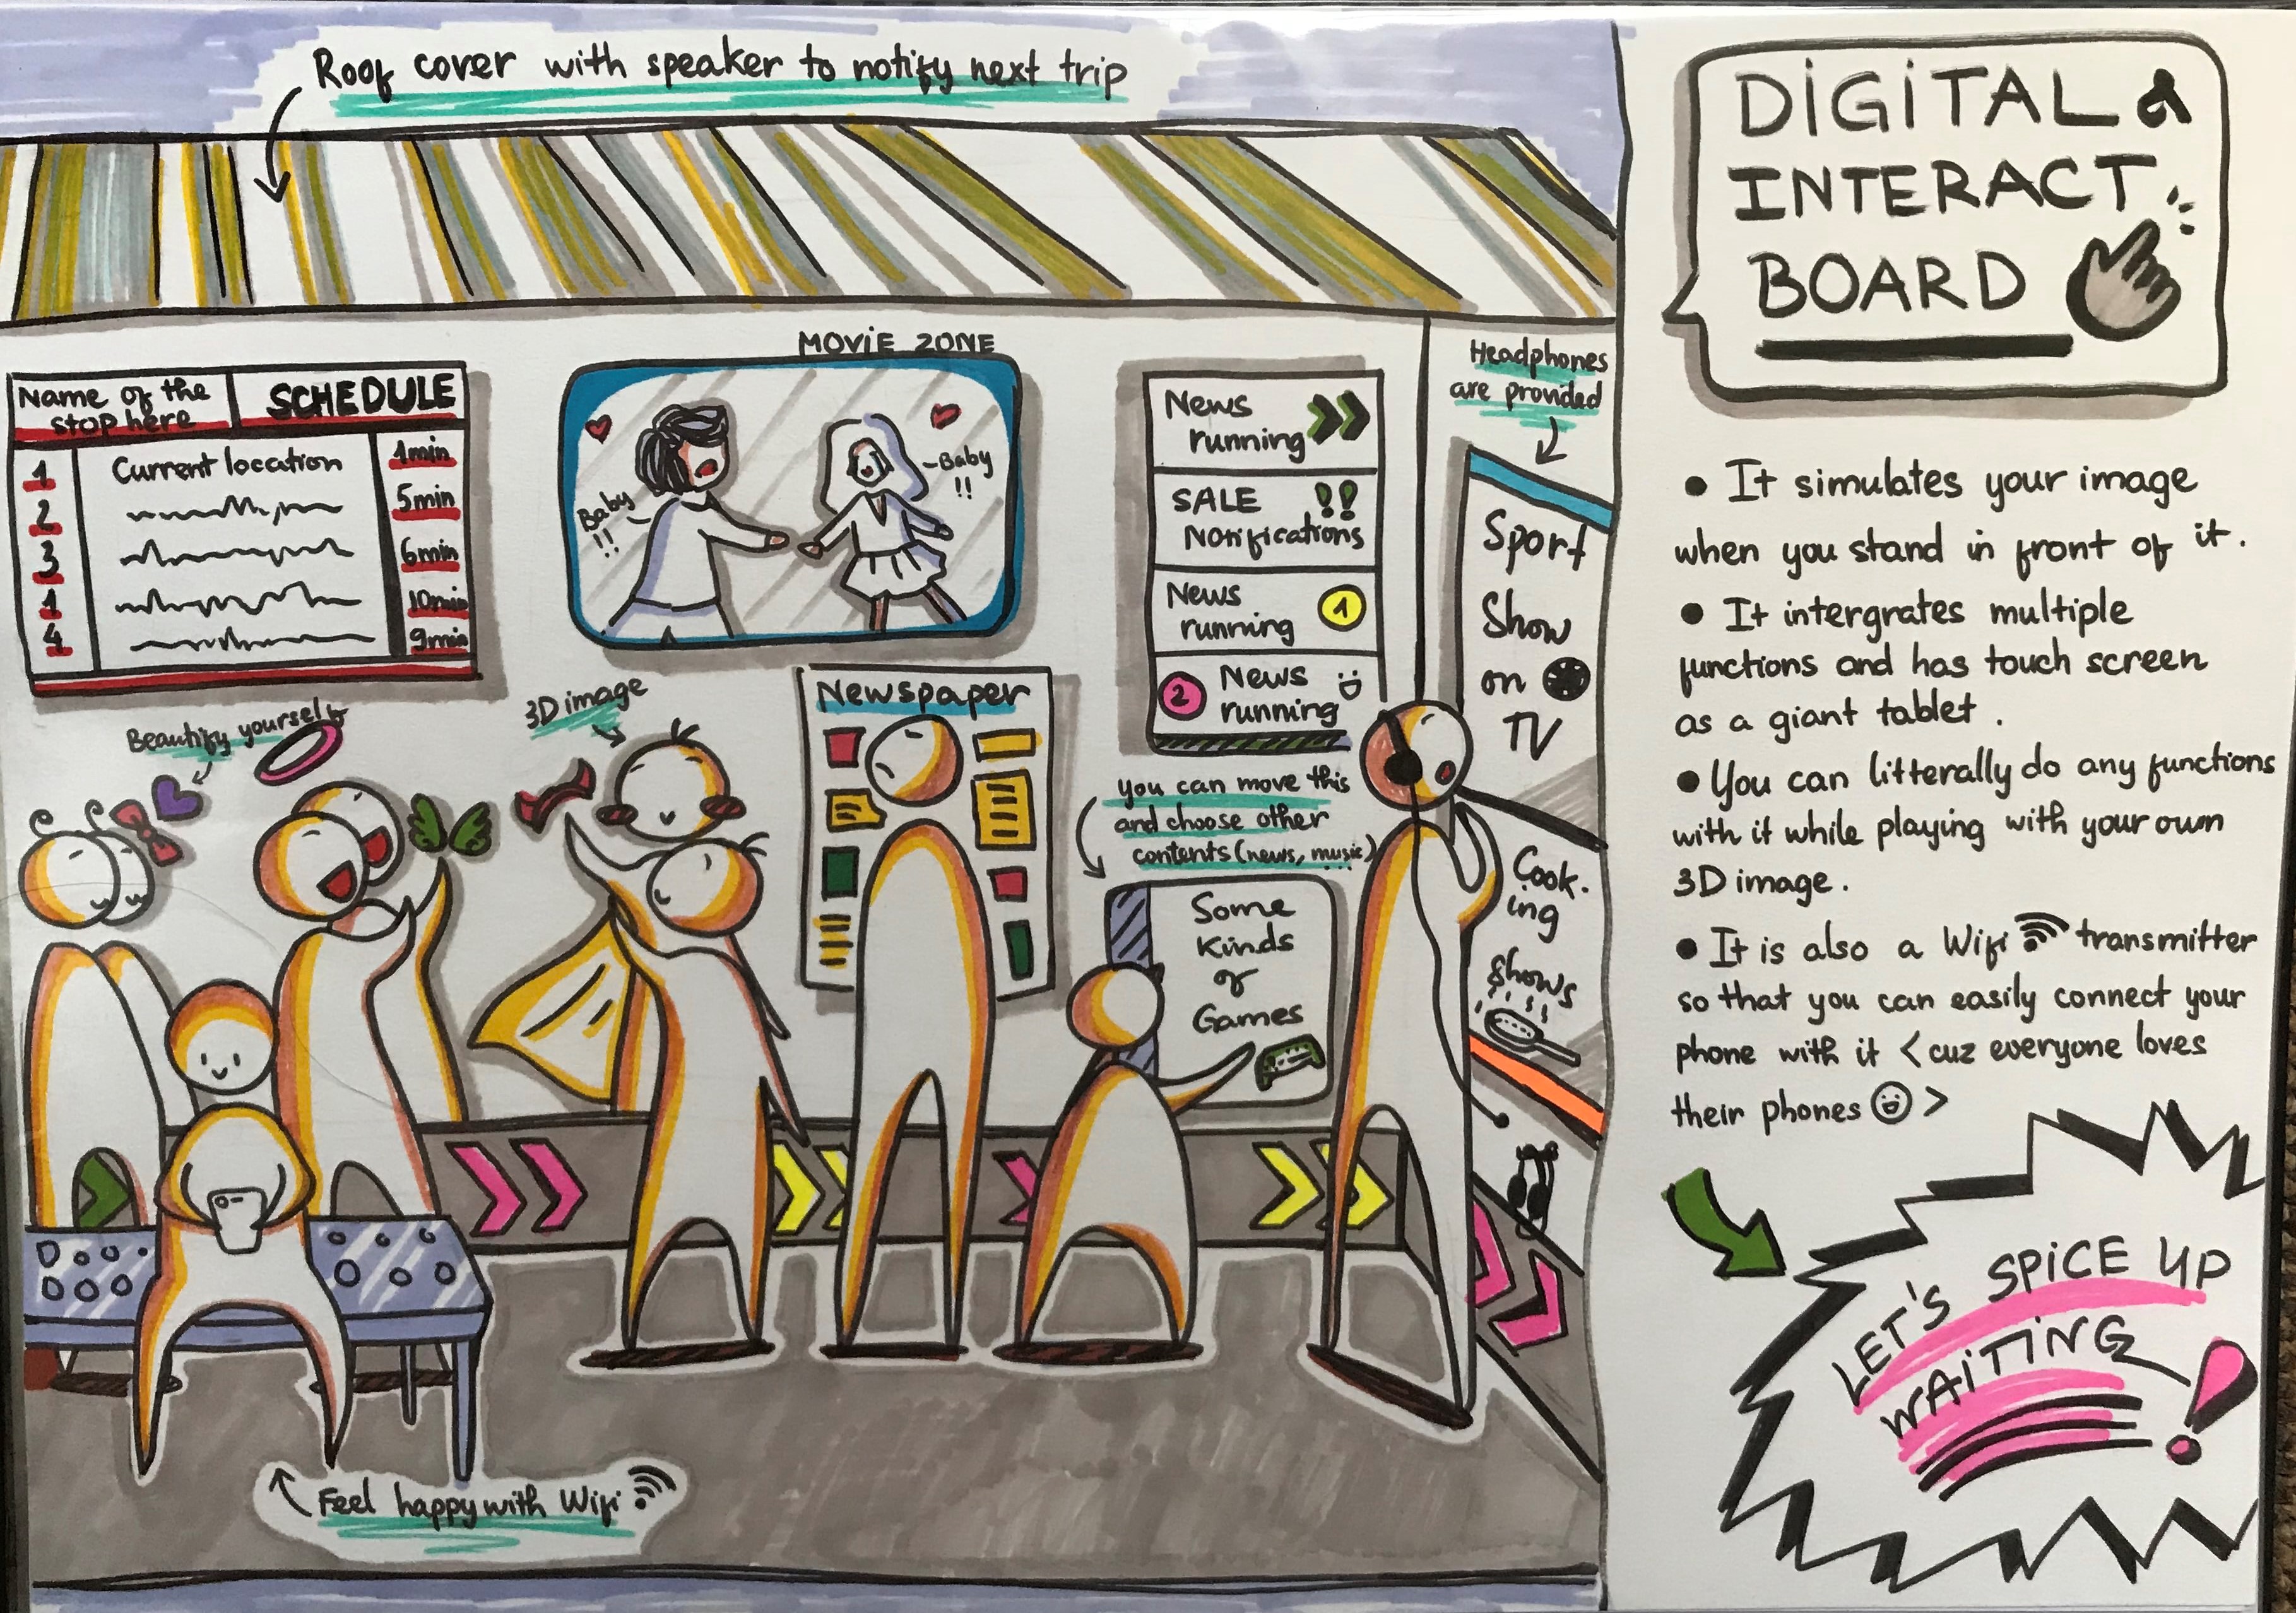 Roof cover with speaker to notify next trip
MOVIE ZONE
Name of the
stop here
SCHEDULE
1 Current location 1min
2 5min
3 6min
1 10min
4 9min
Baby
!!
-Baby
!!
News
running
SALE
Notifications
!!
News
running
1
2
News
running
Headphones
are provided
Sport
Show
on
TV
Cook-
ing
shows
Beautify yourself
3D image
Newspaper
you can move this
and choose other
contents (news, music)
...
Some
Kinds
of
Games
Feel happy with Wifi
DIGITAL &
INTERACT
BOARD
• It simulates your image
when you stand in front of it.
• It intergrates multiple
functions and has touch screen
as a giant tablet.
• You can litterally do any functions
with it while playing with your own
3D image.
• It is also a Wifi transmitter
so that you can easily connect your
phone with it <cuz everyone loves
their phones >
LET'S SPICE UP
WAITING !